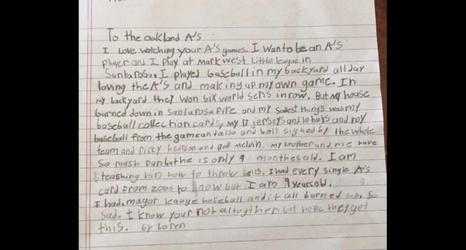 To the oakland A's
I Love watching your A's games. I want to be an A's
player and I play at Mark west Little league in
Santa rosa. I played baseball in my backyard all day
loving the A's and making up my own game. In
my backyard they won six world sers in row. But my house
burned down in Santa rosa fire and my sadest things was my
baseball collection cards, my 17 jerseys and 10 hats and my
baseball from the game and also and ball signed by the whole
team and ricky henson and bob melvin. my brother and me have
So much fun but he is only 9 months old. I am
teashing him how to throw balls. I had every single A's
card from 2000 to now but I am 9 years old.
I had major league baseball and it all burned up. So
Sad. I know your not altogether but hope they get
this. by loren